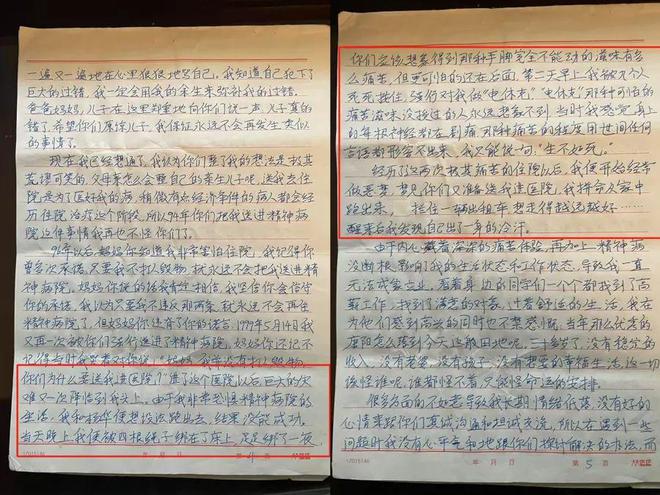 一遍又一遍地在心里狠狠地骂自己，我知道自己犯下了
巨大的过错，我一定会用我的余生来弥补我的过错。
爸爸妈妈，儿子在这里郑重地向你们说一声，儿子真的
错了，希望你们原谅儿子，我保证永远不会再发生类似
的事情了。
现在我已经想通了，我认为你们整我的想法是极其
荒谬可笑的，父母亲怎么会整自己的亲生儿子呢，送我去住
院是为了医好我的病，稍微有点经济条件的病人都会经
历住院治疗这个阶段，所以94年你们把我送进精神病
院这件事情我再也不怪你们了。
96年以后，妈妈你知道我非常害怕住院，我记得你
曾多次承诺，只要我不打人毁物，就永远不会把我送进精
神病院，妈妈你说的话我肯定相信，我坚信你会信守
你的承诺，我认为只要我不违反那两条，就永远不会再住
精神病院了，但妈妈你违背了你的诺言，1999年5月14日我
又再一次被你们强行送进了精神病院，妈妈你还记不
记得当时我哭着对你说："妈妈，我并没有打人毁物，
你们为什么要送我进医院！"进了这个医院以后巨大的灾
难又一次降临到我头上，由于我非常恐惧精神病院的
生活，我和杨华便想设法跑出去，结果没能成功。
当天晚上我便被四根绳子绑在了床上，足足绑了一夜，
年 月 日 第 4 页
你们应该想象得到那种手脚完全不能动的滋味有多
么痛苦，但更可怕的还在后面，第二天早上我被几个人
死死按住，强行对我做"电休克"，"电休克"那种可怕的
痛苦滋味，没经过的人永远想象不到，当时我感觉身上
的每根神经都在剧痛，那种痛苦的程度用世间任何
言语都形容不出来，我只能说一句，"生不如死。"
经历了这两次极其痛苦的住院以后，我便开始经常
做恶梦，梦见你们又准备送我进医院，我拼命从家中
跑出来，拦住一辆出租车，想走得越远越好……
醒来后我发现自己出了一身的冷汗。
由于内心藏着深深的痛苦体验，再加上精神病
没断根，影响了我的生活状态和工作状态，导致我一直
无法成家立业，看着身边的同学们一个个都找到了高
薪工作，找到了满意的对象，过着舒适的生活，我在
为他们感到高兴的同时也不禁感慨，当年那么优秀的
唐阳怎么落到今天这般田地呢，三十好几了，没有稳定的
收入，没有老婆，没有孩子，没有想要的幸福生活，这一切
该怪谁呢，谁都怪不着，只能怪命运的安排。
很多方面的不如意导致我长期情绪低落，没有好的
心情来跟你们真诚沟通和坦诚交流，所以在遇到一些
问题时我没有心平气和地跟你们探讨解决的办法，而
年 月 日 第 5 页